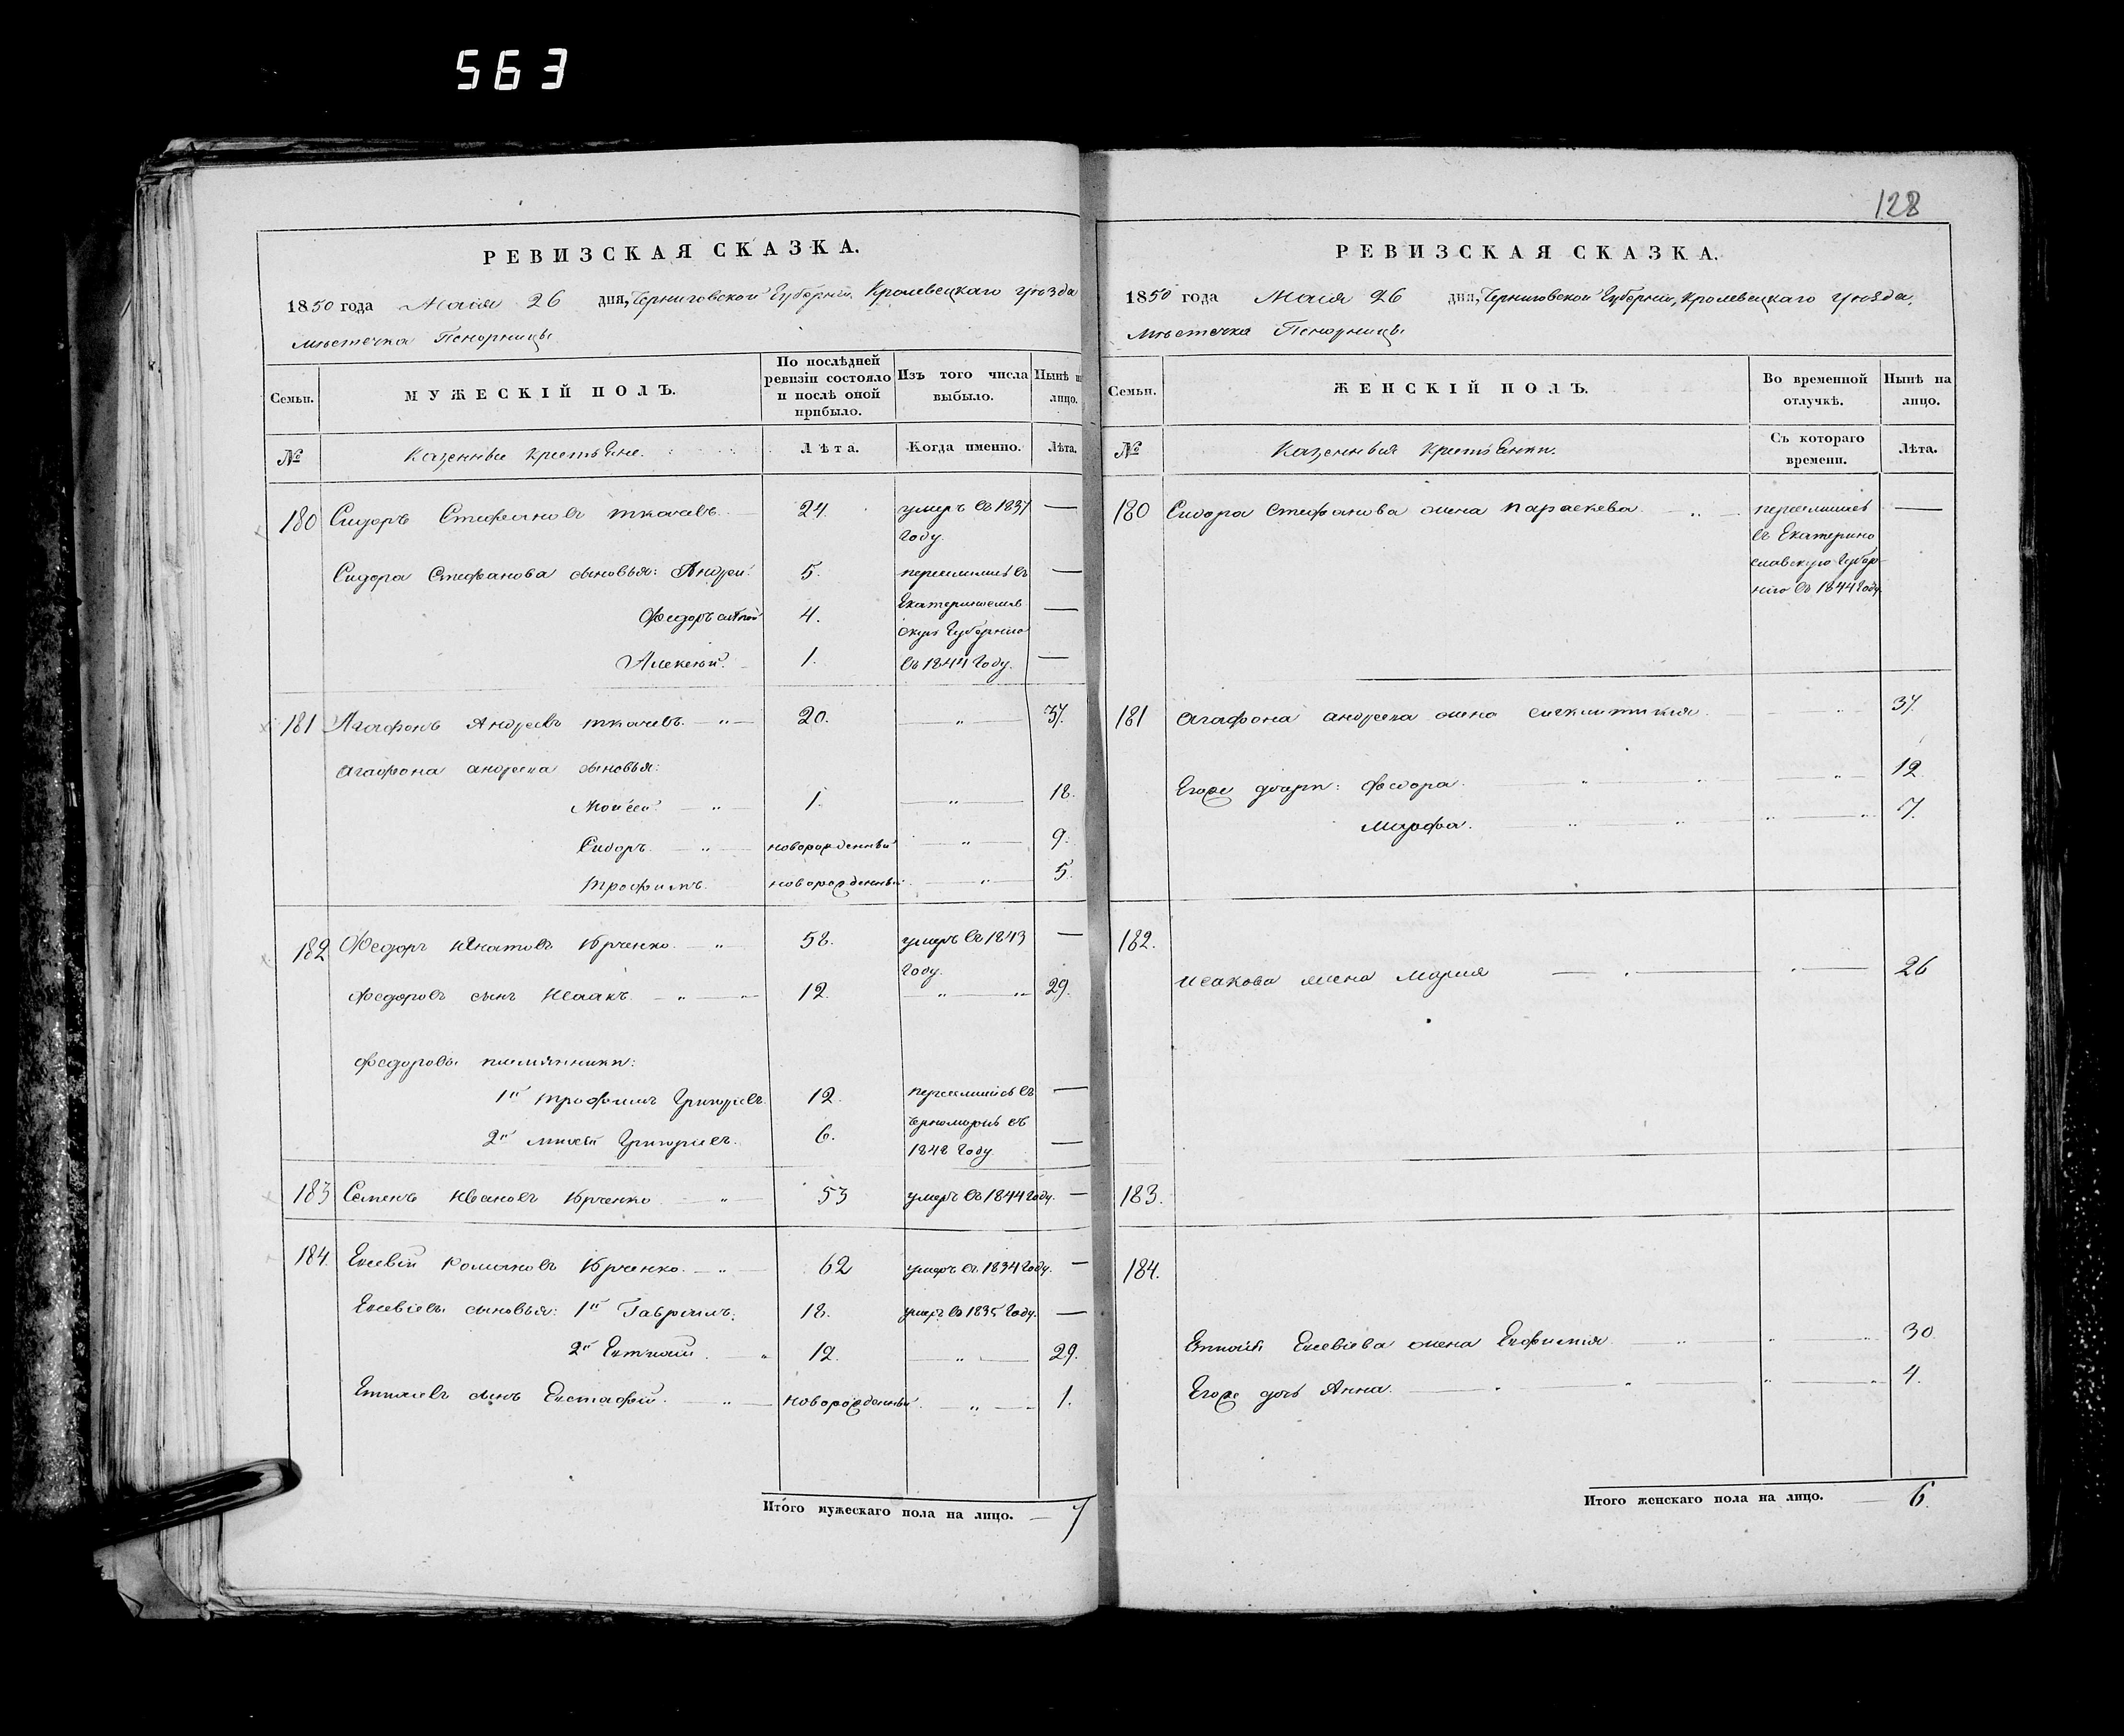 563
128
РЕВИЗСКАЯ СКАЗКА.
1850 года Маія 26 дня, Черниговской Губерніи, Кролевецкаго уѣзда
мѣстечка Понорницы
Семьи.
МУЖЕСКІЙ ПОЛЪ.
По послѣдней ревизіи состояло и послѣ оной прибыло.
Изъ того числа выбыло.
Нынѣ на лицо.
№
Казенные Крестьяне.
Лѣта.
Когда именно.
Лѣта.
180 Сидоръ Стефановъ Ткачевъ 24. умеръ въ 1837 —
году.
Сидора Стефанова сыновья: Андрей. 5. переселились въ —
Федоръ 4. Екатеринослав —
скую Губернію
Алексѣй. 1. въ 1844 году. —
181 Агафонъ Андреевъ Ткачевъ. — „ — 20. „ 37.
Агафона Андреева сыновья:
Моисей — „ — 1. — „ — 18.
Сидоръ. — „ — новорожденный — „ — 9.
Трофимъ. новорожденный — „ — 5.
182 Федоръ Игнатовъ Юрченко. — „ 58. умеръ въ 1843 —
году.
Федоровъ сынъ Исаакъ. — „ — „ — 12. — „ — „ 29.
Федоровы племянники:
1й Трофимъ Григорьевъ 12. переселились въ —
Черноморію въ
2й Григорьевъ. 6. 1848 году. —
183 Семенъ Ивановъ Юрченко — „ — 53 умеръ въ 1844 году. —
184. Евсевій Юрченко. — „ — 62 умеръ въ 1834 году. —
Евсевіевы сыновья: 1й Гавріилъ. 18. умеръ въ 1835 году. —
2й 12. — „ — 29.
сынъ Евстафій. — „ — новорожденный — „ — 1.
Итого мужескаго пола на лицо. — 7
РЕВИЗСКАЯ СКАЗКА.
1850 года Маія 26 дня, Черниговской Губерніи, Кролевецкаго уѣзда,
мѣстечка Понорницы
Семьи.
ЖЕНСКІЙ ПОЛЪ.
Во временной отлучкѣ.
Нынѣ на лицо.
№
Казенныя Крестьянки.
Съ котораго времени.
Лѣта.
180 Сидора Стефанова жена Параскева — „ — переселились —
въ Екатерино
славскую Губер
нію въ 1844 году.
181 Агафона Андреева жена „ 37.
Егоже дочери: Федора. — „ — „ 12.
Марфа. — „ — „ — „ — „ 7.
182.
Исакова жена Марія — „ — „ — 26
183.
184.
Евсевіева жена Евфимія „ „ — „ 30.
Егоже дочь Анна. — „ — „ — „ — „ 4.
Итого женскаго пола на лицо. — 6.